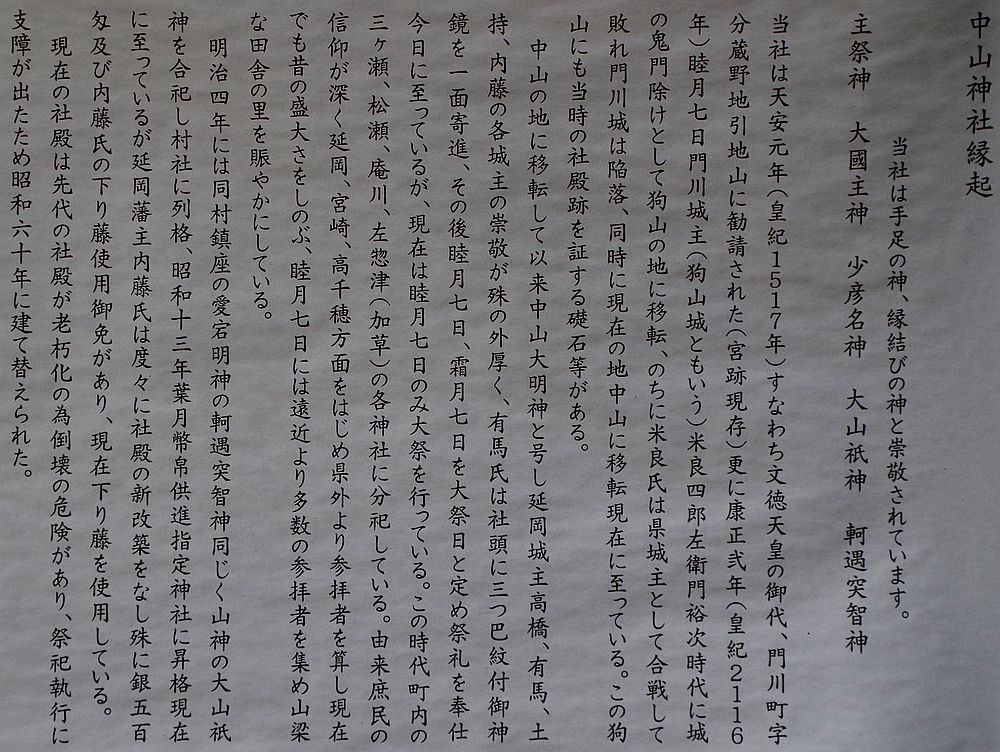 中山神社縁起
当社は手足の神、縁結びの神と崇敬されています。
主祭神　大國主神　少彦名神　大山祇神　軻遇突智神
当社は天安元年（皇紀１５１７年）すなわち文徳天皇の御代、門川町字
分蔵野地引地山に勧請された（宮跡現存）更に康正弐年（皇紀２１１６
年）睦月七日門川城主（狗山城ともいう）米良四郎左衛門裕次時代に城
の鬼門除けとして狗山の地に移転、のちに米良氏は県城主として合戦して
敗れ門川城は陥落、同時に現在の地中山に移転現在に至っている。この狗
山にも当時の社殿跡を証する礎石等がある。
中山の地に移転して以来中山大明神と号し延岡城主高橋、有馬、土
持、内藤の各城主の崇敬が殊の外厚く、有馬氏は社頭に三つ巴紋付御神
鏡を一面寄進、その後睦月七日、霜月七日を大祭日と定め祭礼を奉仕
今日に至っているが、現在は睦月七日のみ大祭を行っている。この時代町内の
三ヶ瀬、松瀬、庵川、左惣津（加草）の各神社に分祀している。由来庶民の
信仰が深く延岡、宮崎、高千穂方面をはじめ県外より参拝者を算し現在
でも昔の盛大さをしのぶ、睦月七日には遠近より多数の参拝者を集め山梁
な田舎の里を賑やかにしている。
明治四年には同村鎮座の愛宕明神の軻遇突智神同じく山神の大山祇
神を合祀し村社に列格、昭和十三年葉月幣帛供進指定神社に昇格現在
に至っているが延岡藩主内藤氏は度々に社殿の新改築をなし殊に銀五百
匁及び内藤氏の下り藤使用御免があり、現在下り藤を使用している。
現在の社殿は先代の社殿が老朽化の為倒壊の危険があり、祭祀執行に
支障が出たため昭和六十年に建て替えられた。